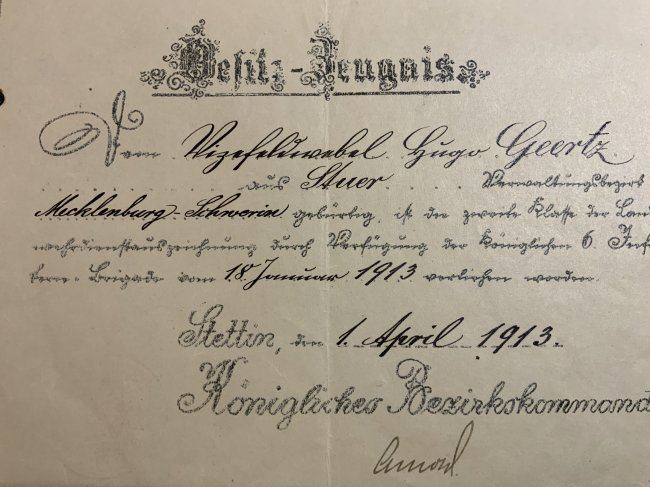 Besitz-Zeugnis.
Dem Vizefeldwebel Hugo Geertz
aus Stuer Verwaltungsbezirk
Mecklenburg-Schwerin gebürtig, ist die zweite Klasse der Lan
wehrdienstauszeichnung durch Verfügung der Königlichen 6. Inf
terie-Brigade vom 18. Januar 1913 verliehen worden.
Stettin, den 1. April 1913.
Königliches Bezirkskommand